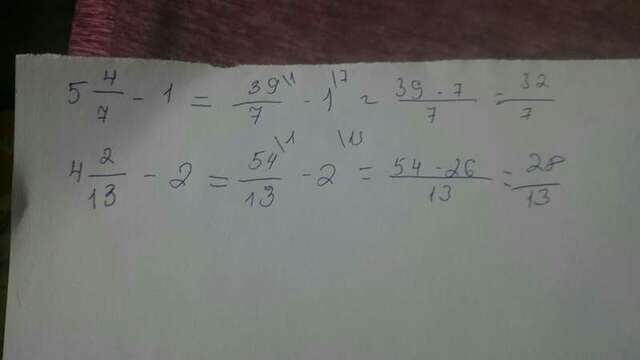 5 4/7 - 1 = 39\1/7 - 1\7 = 39 - 7/7 = 32/7
4 2/13 - 2 = 54\1/13 - 2\13 = 54 - 26/13 = 28/13